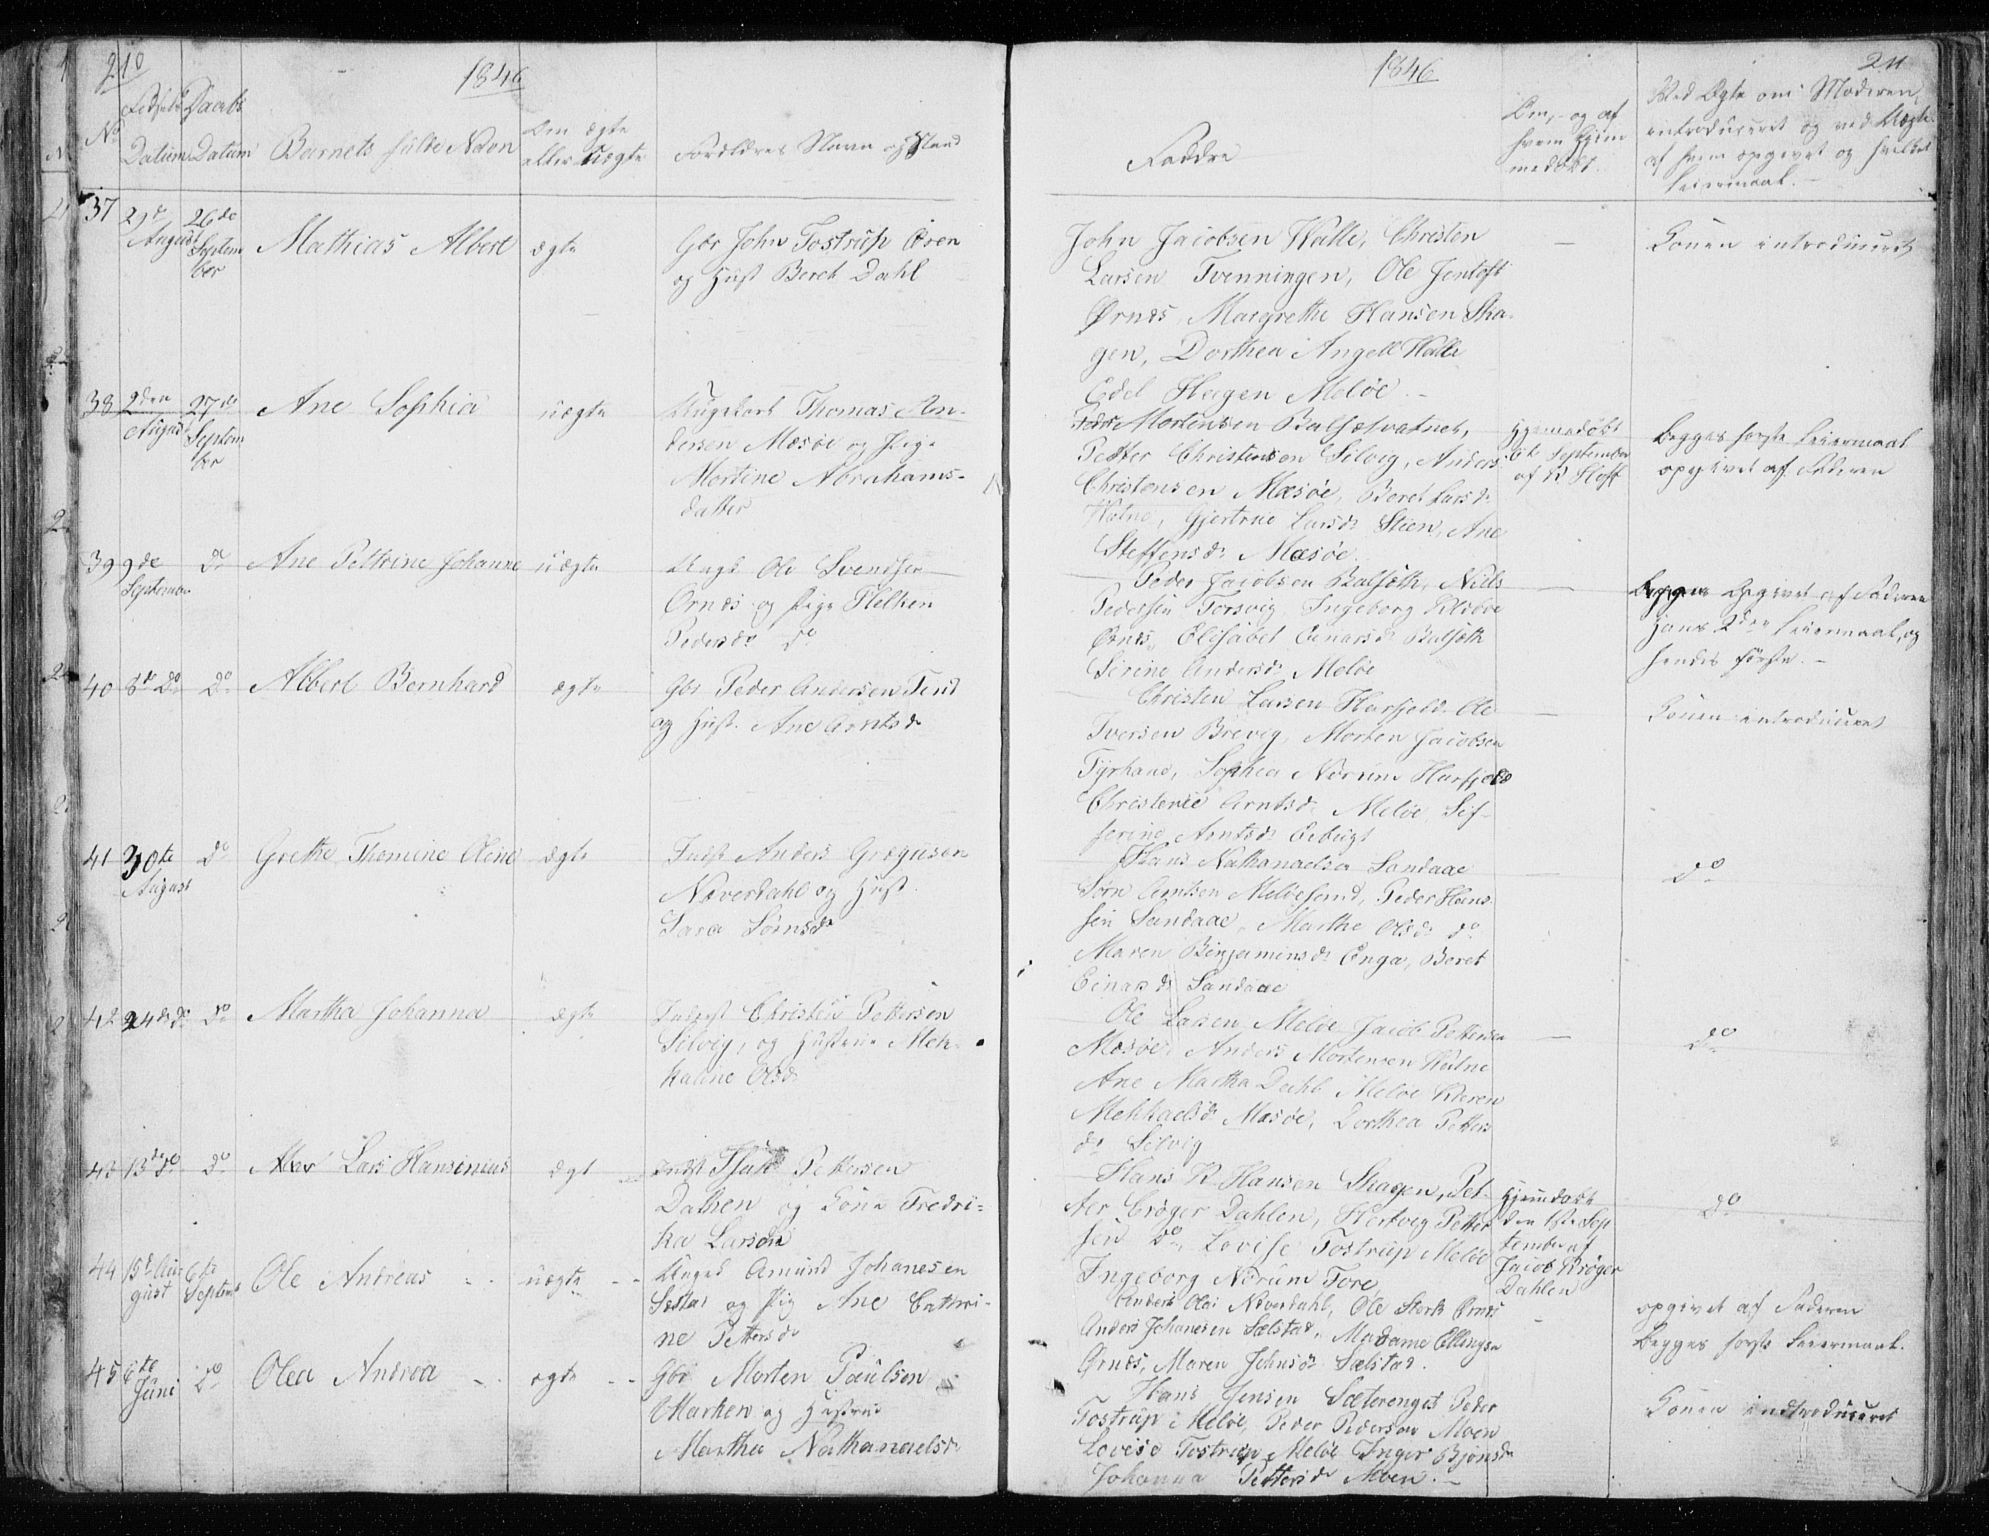 210
1846
No
Fødsels Daabs
Datum Datum
Barnets fulde Navn
Om ægte
eller uægte
Forældres Navn og Stand
37
29de
August
26de
Septem
ber
Mathias Albert
ægte
Gbr John Tostrup Ören
og Hust Beret Dahl
38
2den
August
27de
Septem
ber
Ane Sophia
uægte
Ungekarl Thomas An-
dersen Mesöe og Pige
Martine Abrahams-
datter
39
9de
September
do
Ane Pettrine Johanne
uægte
Ungk Ole Svendsen
Ørnes og Pige Helken
Pedersd. do
40
8de do
do
Albert Bernhard
ægte
Gbr Peder Andersen Tend
og Hust. Ane Arntsd.
41
30te
August
do
Grethe Thomine Oline
ægte
Indst Anders Gregusen
Neverdahl og Hust.
Sara Sörnsd.
42
24de do
do
Martha Johanna
ægte
Inderst Christen Pettersen
Selvig, og Hustrue Meh-
kaline Olsd.
43
13de do
do
Lars Hansinius
ægt
Indst Pettersen
Dahlen og Kone Fredri-
ka Larsen
44
15d Au
gust
6te
Septemb
Ole Andreas
uægte
Ungk Amund Johanesen
og Pig Ane Cathri-
ne Pettersd.
45
6te
Juni
do
Olea Andrea
ægte
Gbr Morten Paulsen
Marken og Hustrue
Martha Nathanaelsd.
1846
211
Faddre
Om, og af
hvem hjem
medøbt.
Ved Ægte om Moderen,
introduceret og ved Uægte
af hvem opgivet og hvilket
Leiermaal.
John Jacobsen Halle, Christen
Larsen Tvenningen, Ole Jentoft
Ørnes, Margrethe Hansen Ska-
gen, Dorthea Angell Halle
Edel Hagen Melöe.
Konen introduceret
Mortensen Balsetvatnet,
Petter Christensen Selvig, Anders
Christensen Mesöe, Beret Larsd.
Gjertrue Larsd. Steen, Ane
Steffensd. Mesöe
Hjemmedøbt
6te September
af
Begges første Leiermaal
opgivet af Faderen
Peder Jacobsen Balseth, Niels
Pedersen Torsvig, Ingeborg
Ørnes, Elisabet Einarsd. Balseth
Serine Andersd. Melöe
Opgivet af Faderen
hans 2den Leiermaal, og
hendes første.
Christen Larsen Harfjeld, Ole
Iversen Brevig, Morten Jacobsen
Sophia Norum Harfjeld
Christense Arntsd. Melöe, Sef-
ferine Arntsd.
Konen introduceret
Hans Nathanaelsen Sandaae
Sörn Arntsen Melöesund, Peder Han-
sen Sandaae, Marthe Olsd. do
Maren Benjaminsd. Enga, Beret
Einarsd. Sandaae
do
Ole Larsen Melöe Jacob Pettersen
Mesöe, Anders Mortensen
Ane Martha Dahl Melöe Karen
Mehkaelsd. Mesöe, Dorthea Petters
d. Selvig
do
Hans R Hansen Skagen, Pet-
ter Kröger Dahlen, Hertvig Petter
sen do, Lovise Tostrup Melöe
Ingeborg Norum Fore
Hjemdøbt
den 1ste Sep
tember af
Jacob Kröger
Dahlen
do
Anders Olai Neverdahl, Ole Stork Ørnes
Anders Johanesen Selstad, Madame Ellingsen
Ørnes, Maren Johnsd. Selstad.
opgivet af Faderen
Begges første Leiermaal.
Hans Jensen Sæterenget Peder
Tostrup Melöe, Peder Pedersen Moen
Lovise Tostrup Melöe Inger Bjönsd.
Johanna Pettersd. Moen.
Konen indtroduceret